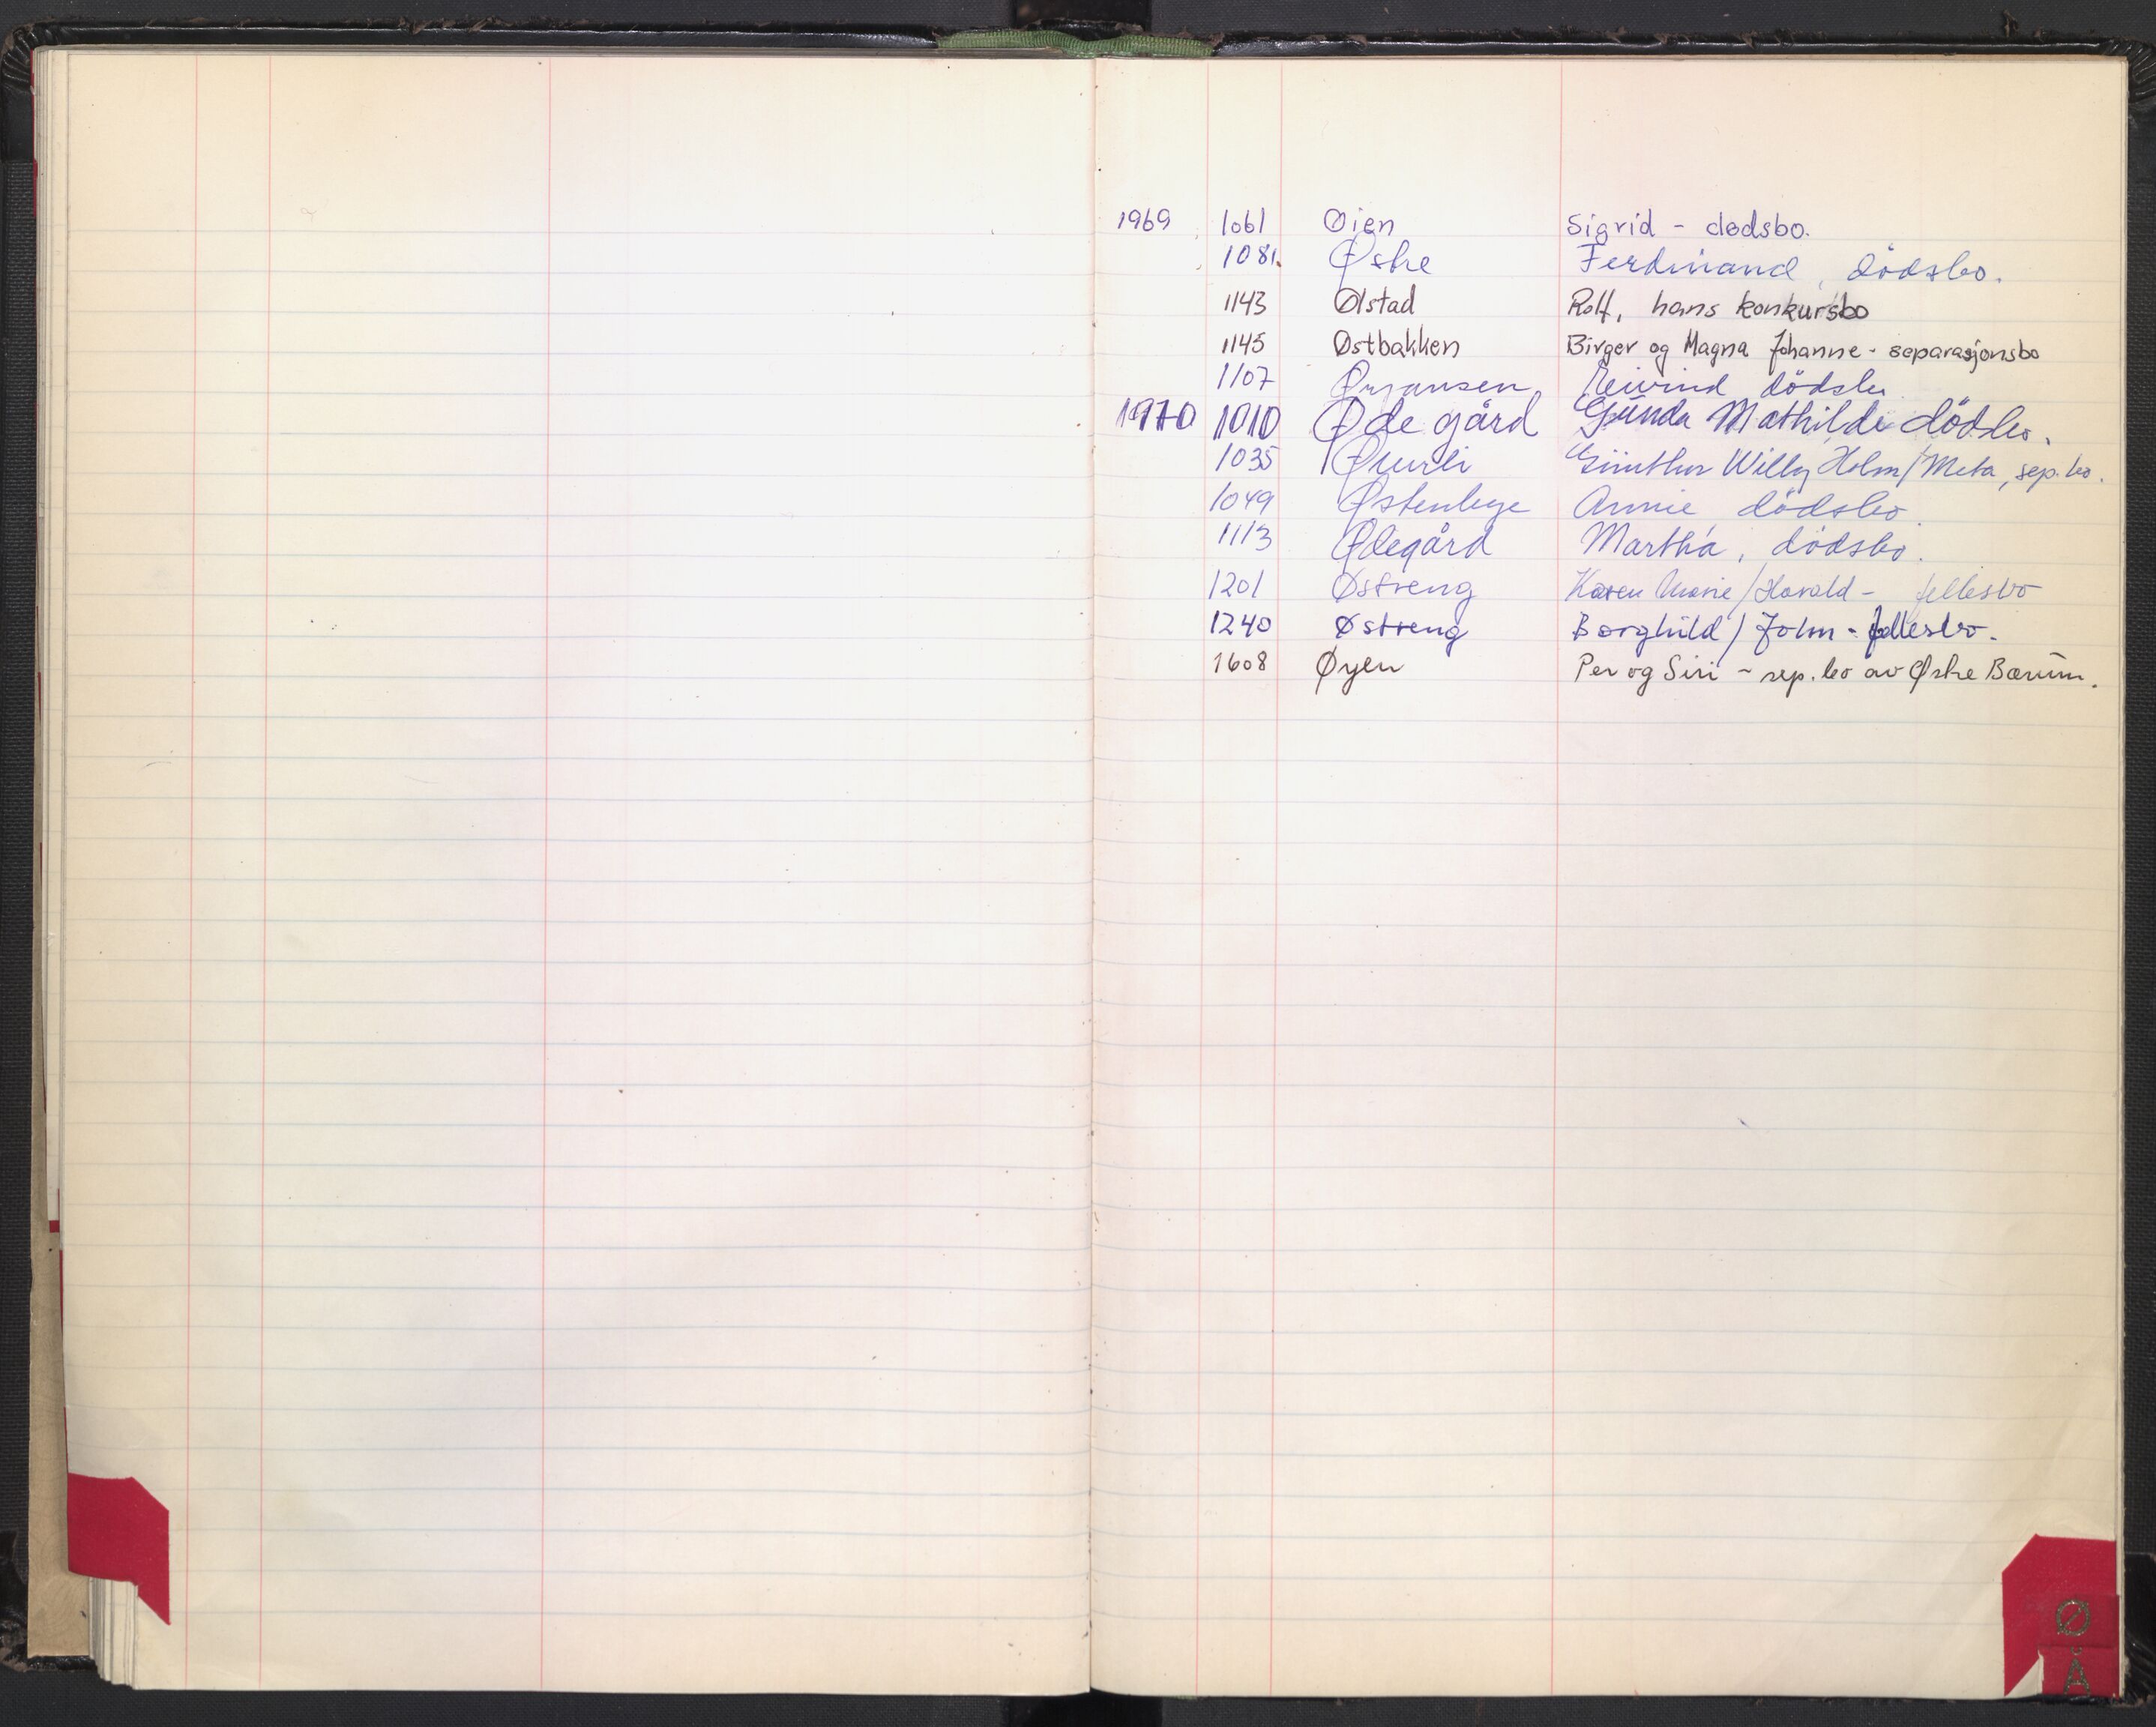 1969 1061 Øien Sigrid - dødsbo.
1081. Østre Ferdinand, dödsbo.
1143 Ølstad Rolf, hans konkursbo
1145 Østbakken Birger og Magna Johanne - separasjonsbo
1107 Ørjansen, Eivind dödsbo
1970 1010 Ødegård Gunda Mathilde dödsbo.
1035 Günther Willy Holm/Meta, sep.bo.
1049 Annie dödsbo.
1113 Ødegård Martha, dödsbo.
1201 Østreng Karen Marie/Harald - fellesbo
1240 Østreng Borghild/John - fellesbo.
1608 Øyen Per og Siri - sep.bo av Østre Bærum.
Ø
Å